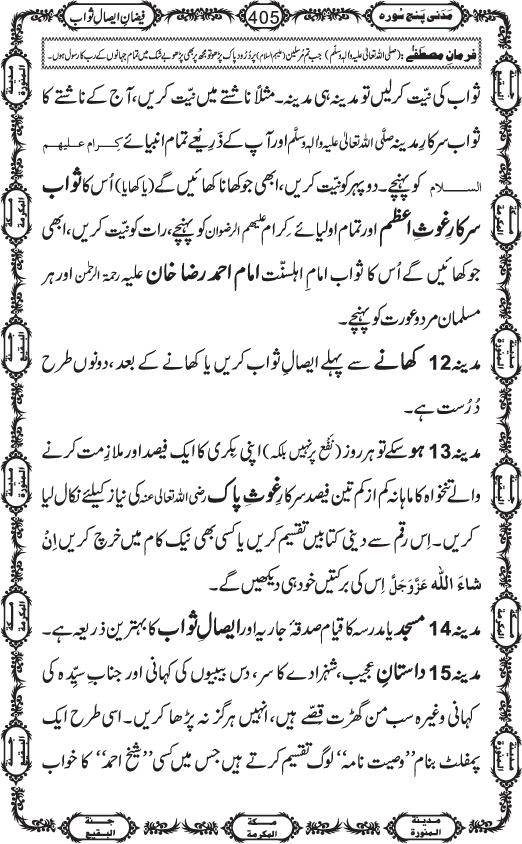 مَدَنی پنج سورہ
405
فیضانِ ایصالِ ثواب
فرمانِ مصطفٰے :(صلی اللہ تعالیٰ علیہ والہٖ وسلّم) جب تم مُرسلین (علیہم السلام) پر دُرُود پاک پڑھو تو مجھ پر بھی پڑھو بے شک میں تمام جہانوں کے رب کا رسول ہوں۔
ثواب کی نیّت کرلیں تو مدینہ ہی مدینہ۔ مثلاً ناشتے میں نیّت کریں، آج کے ناشتے کا
ثواب سرکارِ مدینہ صلَّی اللہُ تعالیٰ علیہِ واٰلہٖ وسلَّم اور آپ کے ذَرِیعے تمام انبیائے کرام علیھم
السلام کو پہنچے۔ دوپہر کو نیّت کریں، ابھی جو کھانا کھائیں گے (یا کھایا) اُس کا ثواب
سرکارِ غوثِ اعظم اور تمام اولیائے کِرام علیھم الرضوان کو پہنچے، رات کو نیّت کریں، ابھی
جو کھائیں گے اُس کا ثواب امامِ اہلسنّت امام احمد رضا خان علیہ رحمۃ الرحمٰن اور ہر
مسلمان مرد و عورت کو پہنچے۔
مدینہ 12 کھانے سے پہلے ایصالِ ثواب کریں یا کھانے کے بعد، دونوں طرح
دُرُست ہے۔
مدینہ 13 ہو سکے تو ہر روز (نَفْع پر نہیں بلکہ) اپنی بِکری کا ایک فیصد اور ملازِمت کرنے
والے تنخواہ کا ماہانہ کم از کم تین فیصد سرکارِ غوثِ پاک رضی اللہ تعالیٰ عنہ کی نیاز کیلئے نکال لیا
کریں۔ اِس رقم سے دینی کتابیں تقسیم کریں یا کسی بھی نیک کام میں خرچ کریں اِنْ
شاءَ اللہ عَزَّوَجَلَّ اِس کی برکتیں خود ہی دیکھیں گے۔
مدینہ 14 مسجد یا مدرسہ کا قیام صدقۂ جاریہ اور ایصالِ ثواب کا بہترین ذریعہ ہے۔
مدینہ 15 داستانِ عجیب، شہزادے کا سر، دس بیبیوں کی کہانی اور جنابِ سیِّدہ کی
کہانی وغیرہ سب من گھڑت قصّے ہیں، انہیں ہرگز نہ پڑھا کریں۔ اسی طرح ایک
پمفلٹ بنام ’’وصیت نامہ‘‘ لوگ تقسیم کرتے ہیں جس میں کسی ’’شیخ احمد‘‘ کا خواب
مدینة المنورة
جنة البقیع
مكة المكرمة
مدینة المنورة
جنة البقیع
مكة المكرمة
مدینة المنورة
جنة البقیع
مكة المكرمة
مدینة المنورة
جنة البقیع
مكة المكرمة
مدینة المنورة
جنة البقیع
مكة المكرمة